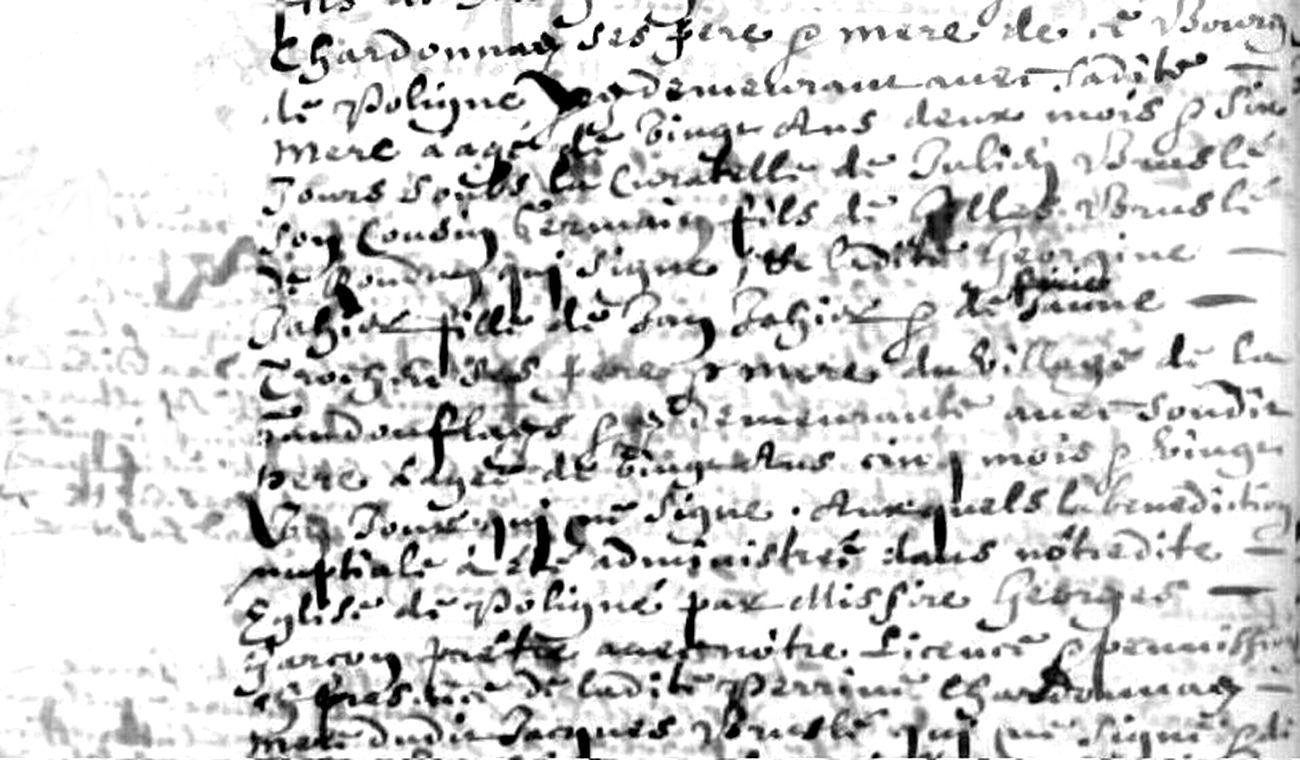 fils de
Chardonnay ses pere & mere de ce Bourg
de Poligné y demeurant avec ladite —
Mere aagé de vingt Ans deux mois & six
Jours soubs la Curatelle de Julien Bruslé
son Cousin Germain fils de Gilles Bruslé
de qui signe, & ladite Georgine —
Jahier fille de Jan Jahier & de Janne —
ses pere & mere du village de la
& y demeurante avec sondit
pere aagée de vingt Ans cinq mois & vingt
Jours qui ne signe. Auxquels la benediction
nuptiale a esté administrée dans nôtredite —
Eglise de Poligné par Missire Georges —
Garçon prêtre avec nôtre Licence & permission
en presence de ladite Perrine Chardonnay —
mere dudit Jacques Bruslé qui ne signe &